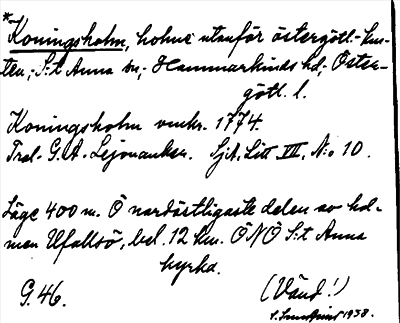 *Koningsholm, holme utanför östergötl.-kus-
ten, S:t Anna sn, Hammarkinds hd, Öster-
götl. l.
Koningsholm omkr. 1774.
Trol. G. A. Lejonanker. Sjk. Litt VII, N:o 10.
Läge 400 m. Ö nordöstligaste delen av hol-
men Ufallsö, bel. 12 km. ÖNÖ S:t Anna
kyrka.
G. 46.
(Vänd!)
1938.